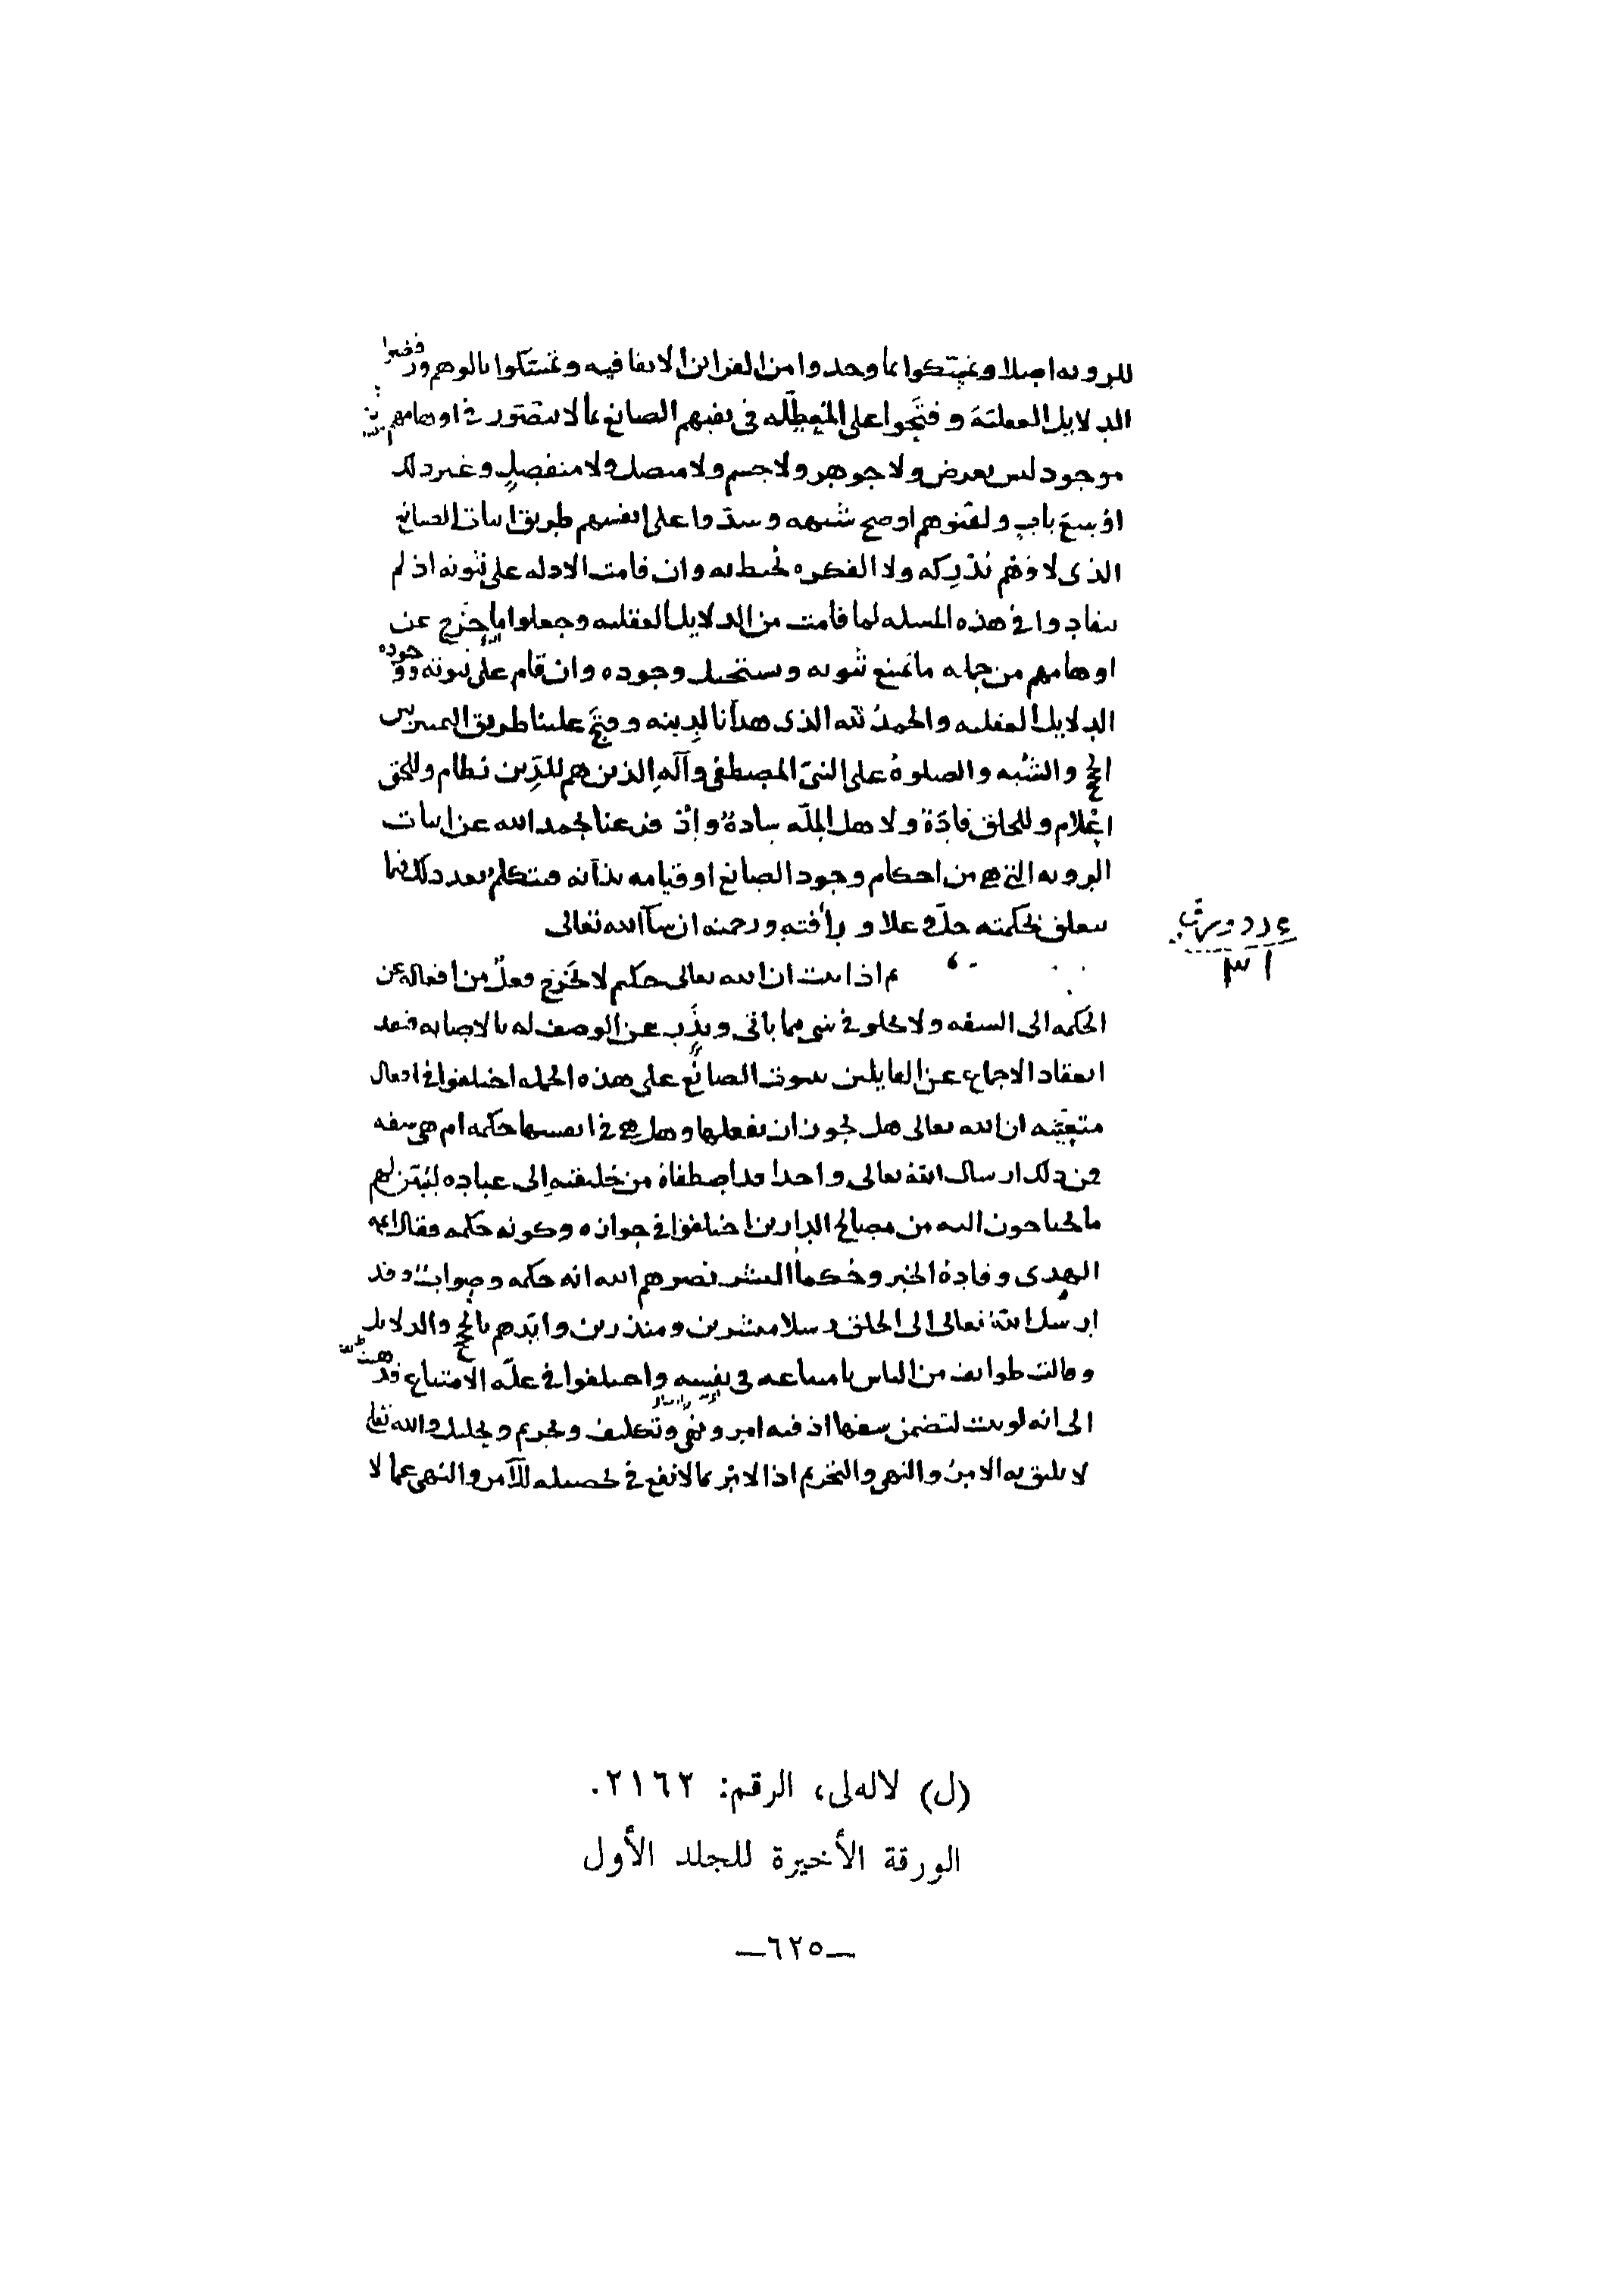 للرويه اصلا وتمسكوا بما وجدوا من القراين الاتفاقيه وتمسكوا بالوهم ورفضوا
الدلايل العقليّة وفتحوا على المعطّله في نفيهم الصانع بما لا يتصور في اوهامهم
موجود ليس بعرض ولا جوهر ولا جسم ولا متصل ولا منفصل وغير ذلك
اوسع باب ولقنوهم اوضح شبهه وسدّوا على انفسهم طريق اثبات الصانع
الذي لا وهم يُدركه ولا الفكره تحيط به وان قامت الادله على ثبوته اذ لم
ينقادوا في هذه المسله لما قامت من الدلايل العقليه وجعلوا ما خرج عن
اوهامهم من جمله ما يمتنع ثبوته ويستحيل وجوده وان قام على ثبوته ووجوده
الدلايل العقليه والحمدُ لله الذي هدانا لدينه وفتح علينا طريق التمييز بين
الحجج والشُبه والصلوةُ على النبيّ المصطفى وآله الذين هم للدّين نظام وللحق
اعْلام وللخلق قادَة ولاهل الملّه سادةٌ واِذْ فرغنا بحمد الله عن اثبات
الرويه التي هي من احكام وجود الصانع او قيامه بذاته فنتكلم بعد ذلك فيما
يتعلق بحكمته جلّ وعلا ورأفته ورحمته ان شآ الله تعالى
ثم اذا ثبت ان الله تعالى حكيم لا يخرج فعلٌ من افعاله عن
الحكمه الى السفه ولا يخلو في شي مما ياتي ويذَر عن الوصف له بالاصابه فبعد
انعقاد الاجماع عن القايلين بثبوت الصانع على هذه الجمله اختلفوا في افعال
متعيّنه ان الله تعالى هل يجوز ان يفعلها وهل هي في انفسها حكمه ام هي سفه
فمن ذلك ارسال الله تعالى واحدا قد اصطفاه من خليقته الى عباده ليُبيّن لهم
ما يحتاجون اليه من مصالح الدارين اختلفوا في جوازه وكونه حكمه فقال ايمه
الهدى وقادةُ الخير وحُكمآ البشر نصرهم الله انه حكمه وصوابٌ وقد
ارسل اللهُ تعالى الى الخلق رسلا مبشرين ومنذرين وايّدهم بالحجج والدلايل
وقالت طوايف من الناس بامتناعه في نفسه واختلفوا في علّه الامتناع
الى انه لو ثبت لتضمن سفها اذ فيه امر ونهي وتكليف وتحريم وتحليل والله تعلى
لا يليق به الامرُ والنهي والتحريم اذ الامر بما لا نفع في تحصيله للآمر والنهي عما لا
٣١
(ل) لاله‌لى، الرقم: ٢١٦٢.
الورقة الأخيرة للجلد الأول
—٦٢٥—